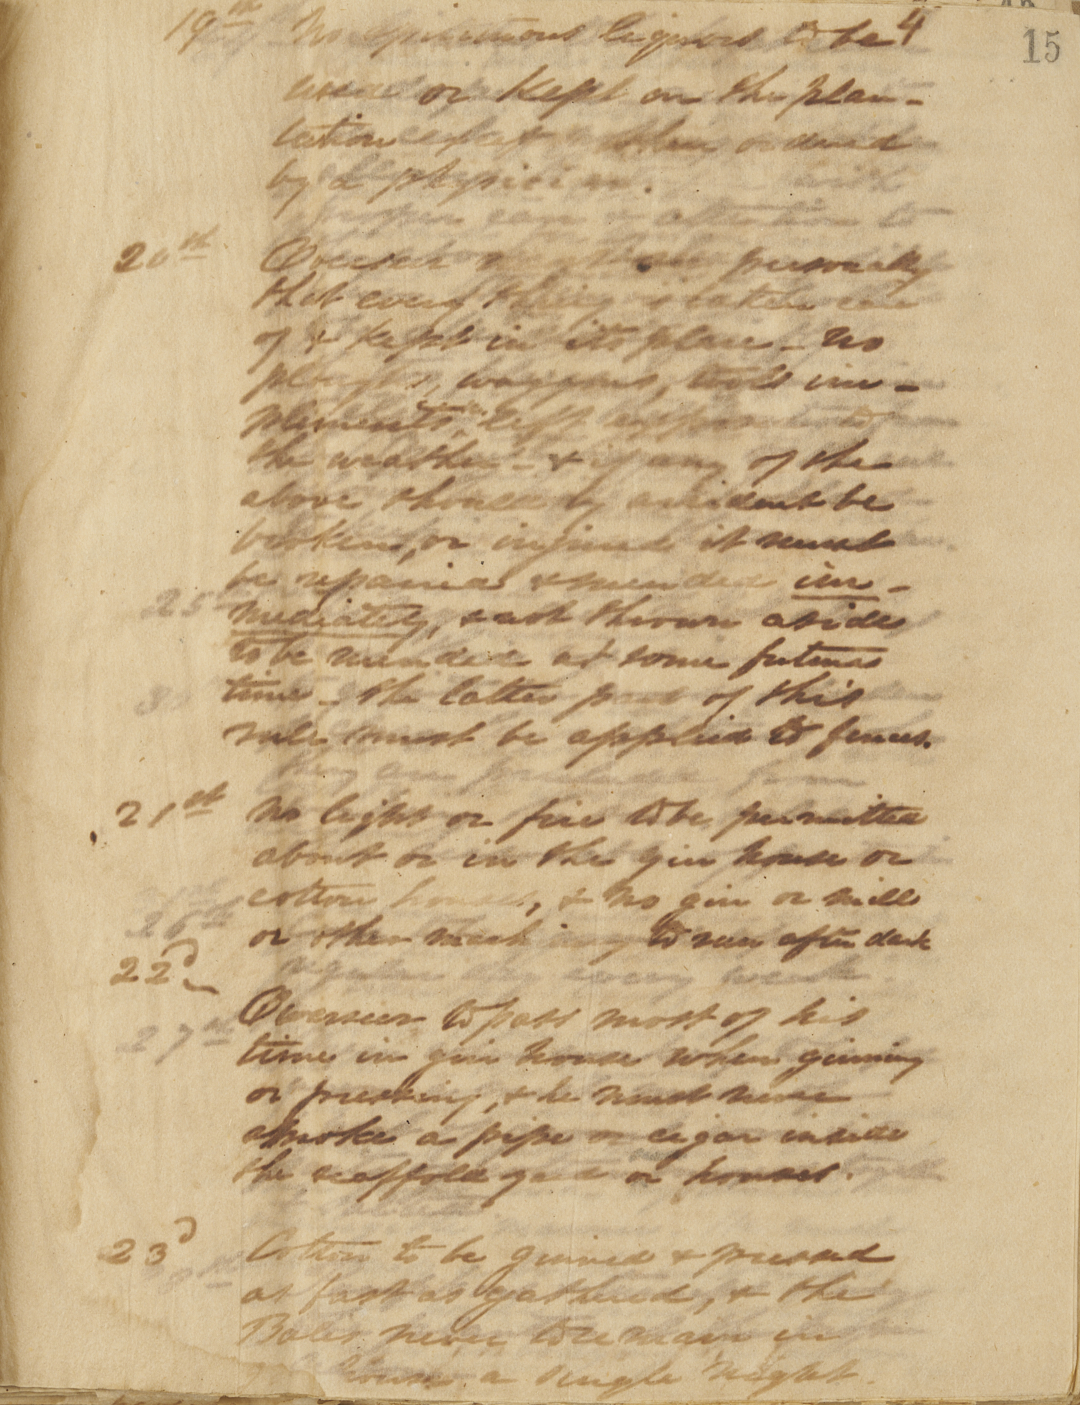 4
15
19th No spirituous liquors to be
used or kept on the plan-
tation except when ordered
by a physician.
20th Overseer must see personally
that every thing is taken care
of & kept in its place - no
ploughs, waggons, tools im-
plements, left exposed to
the weather - & if any of the
above should by accident be
broken, or injured it must
be repaired & mended im-
mediately, & not thrown aside
to be mended at some future
time - the latter part of this
rule must be applied to fences.
21st No light or fire to be permitted
about or in the gin house or
cotton houses, & no gin or mill
or other machinery to run after dark
22d
Overseer to pass most of his
time in gin house when ginning
or pressing, & he must never
smoke a pipe or cigar inside
the scaffold yard or houses.
23d Cotton to be ginned & pressed
as fast as gathered, & the
Bales never to remain in
house a single night.